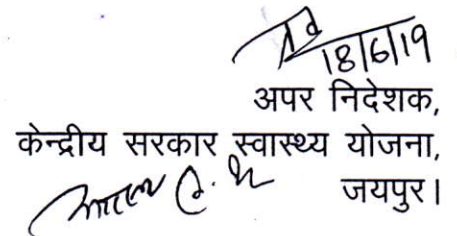 18/6/19
अपर निदेशक,
केन्द्रीय सरकार स्वास्थ्य योजना,
जयपुर।